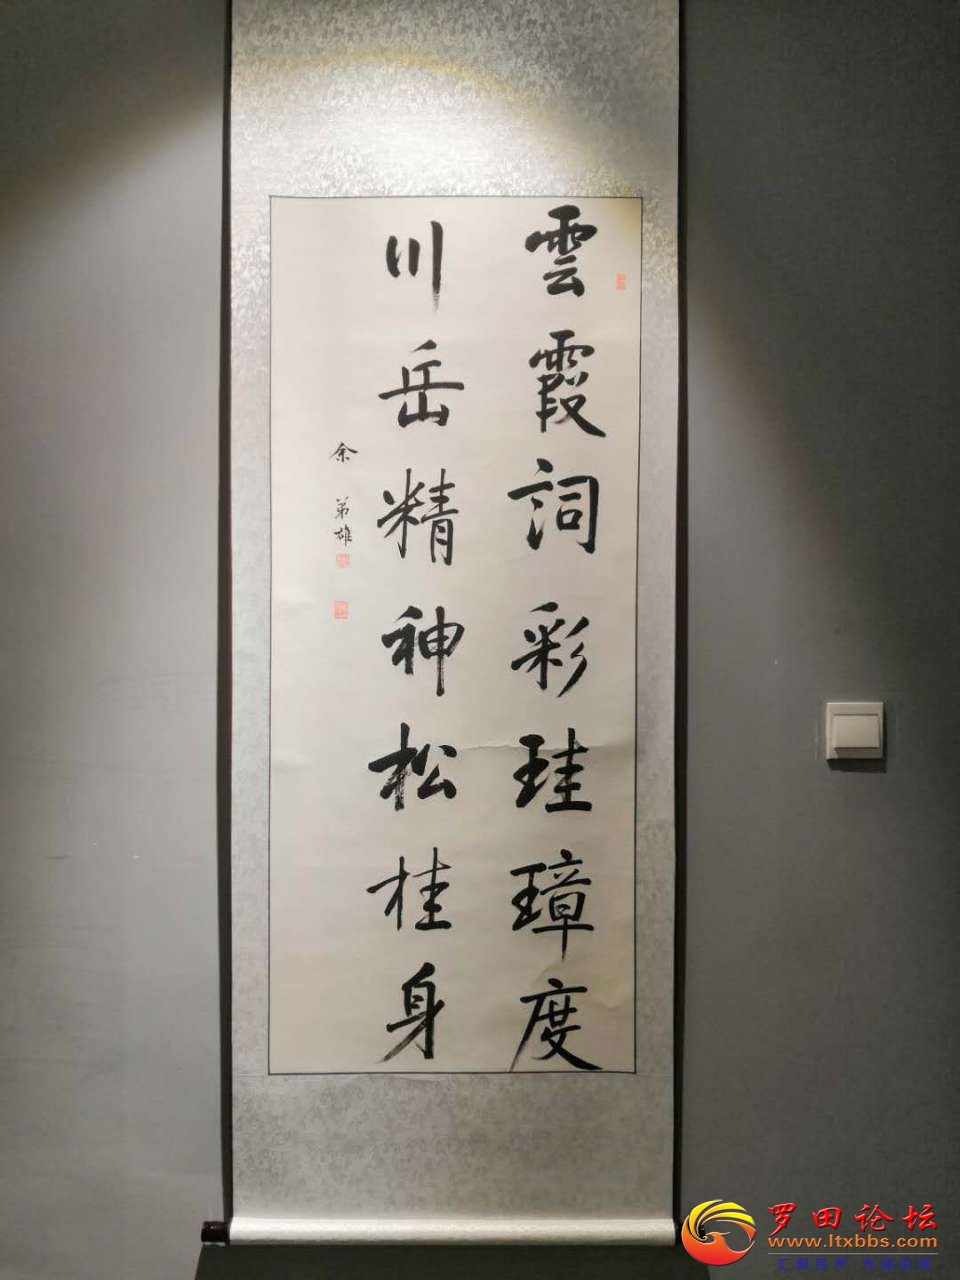 雲霞詞彩珪璋度
川岳精神松桂身
余 弟雄
罗田论坛
www.ltxbbs.com